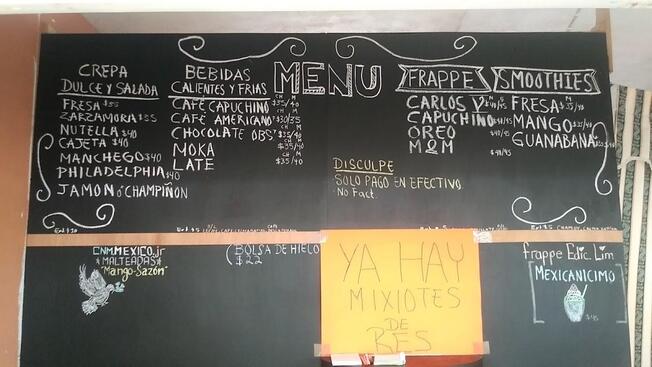 MENU
CREPA
DULCE Y SALADA
FRESA $35
ZARZAMORA $35
NUTELLA $40
CAJETA $40
MANCHEGO $40
PHILADELPHIA $40
JAMON ó CHAMPIÑON
BEBIDAS
CALIENTES Y FRIAS
CH M
CAFÉ CAPUCHINO $35/40
CAFÉ AMERICANO $30/35
CHOCOLATE OBS. $35/40
CH M
MOKA $35/40
CH M
LATE $35/40
DISCULPE
SOLO PAGO EN EFECTIVO.
·No Fact.
FRAPPE
CARLOS V
CAPUCHINO $40/45
OREO
M&M $40/45
SMOOTHIES
M
FRESA $35/40
MANGO $35/40
GUANABANA
CNMMEXICO.jr
MALTEADAS
"Mango-Sazón"
(BOLSA DE HIELO
$22
YA HAY
MIXIOTES
DE
RES
frappe Edic. Lim
MEXICANICIMO
$45